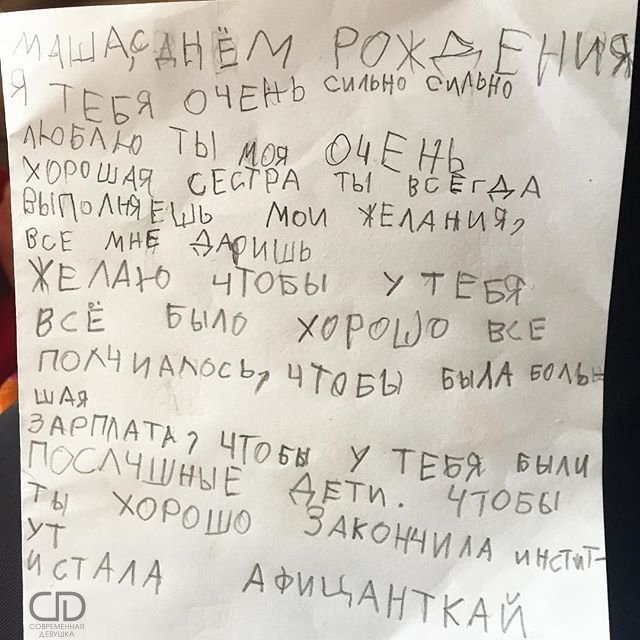 МАША, С ДНЁМ РОЖДЕНИЯ
Я ТЕБЯ ОЧЕНЬ СИЛЬНО СИЛЬНО
ЛЮБЛЮ ТЫ МОЯ ОЧЕНЬ
ХОРОШАЯ СЕСТРА ТЫ ВСЕГДА
ВЫПОЛНЯЕШЬ МОИ ЖЕЛАНИЯ,
ВСЕ МНЕ ДАРИШЬ
ЖЕЛАЮ ЧТОБЫ У ТЕБЯ
ВСЁ БЫЛО ХОРОШО ВСЕ
ПОЛЧИАЛОСЬ, ЧТОБЫ БЫЛА БОЛЬ
ШАЯ
ЗАРПЛАТА, ЧТОБЫ У ТЕБЯ БЫЛИ
ПОСЛЧШНЫЕ ДЕТИ. ЧТОБЫ
ТЫ ХОРОШО ЗАКОНЧИЛА ИНСТИТ-
УТ
И СТАЛА АФИЦАНТКАЙ
CD
СОВРЕМЕННАЯ
ДЕВУШКА